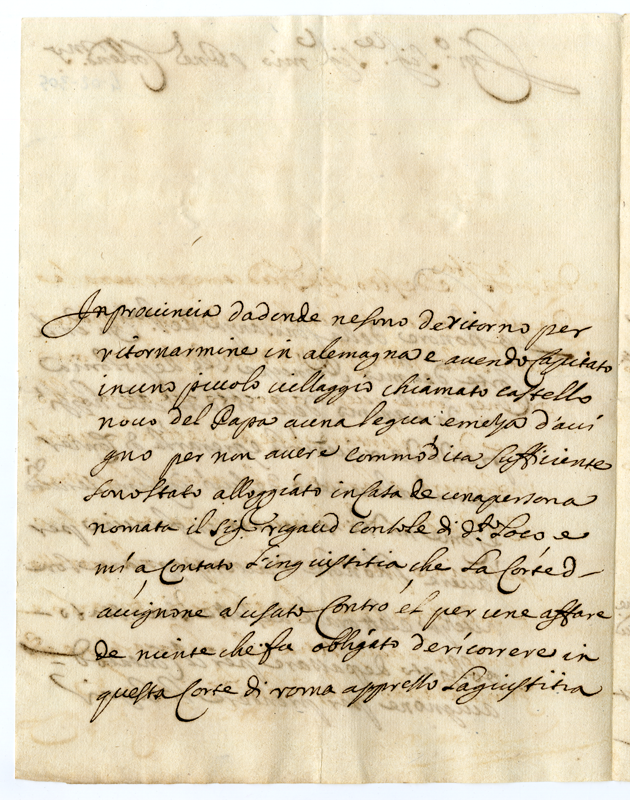 In prouincia dadonde nesono deritorno per
ritornarmine in alemagna e auendo Capitato
in uno piccolo uillaggio chiamato castello
nouo del Papa auna legua emeza d'aui
gno per non auere commódita sufficiente
sono stato alloggiáto in Casa de una persona
nomata il sig.r rigaud console di d.to Loco e
mi a Contato L'ingiustitia che La Corte d-
auignone a'usato Contro él per une affare
de niente che fu obligáto dericorrere in
questa Corte di roma appresso La giustitia